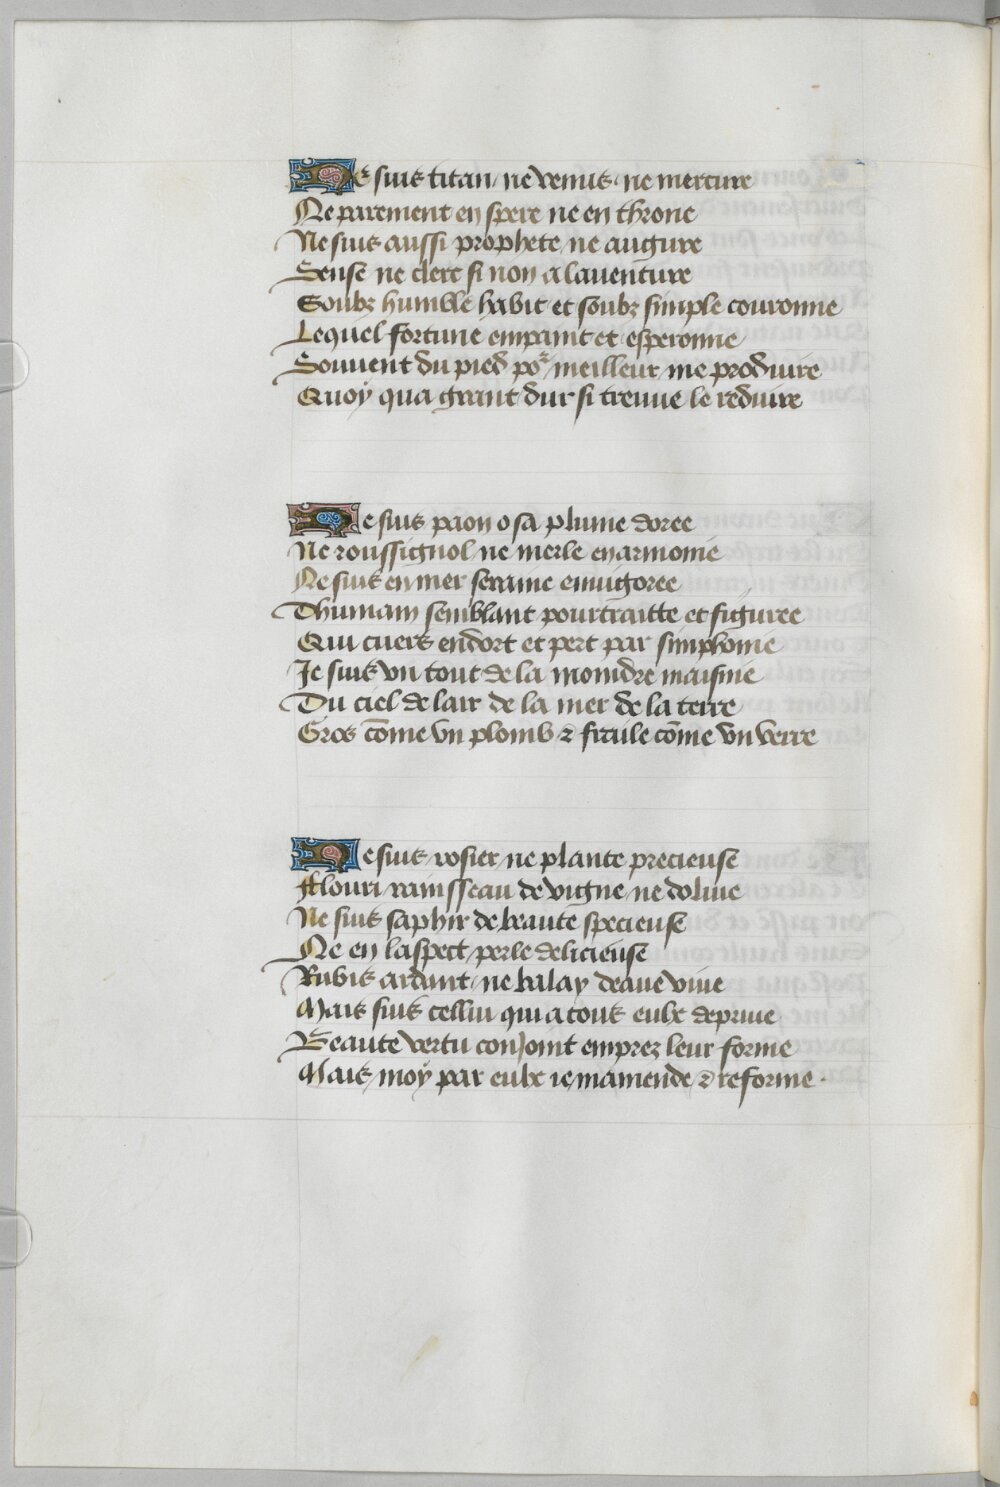 Ne suis titan ne venus ne mercure
Ne parement en spere ne en throne
Ne suis aussi prophete ne augure
Sense ne clerc si non a laventure
Soubz humble habit et soubz simple couronne
Lequel fortune empaint et esperonne
Souvent du pied por meilleur me produire
Quoy qua grant dur si treuue le reduire
Ne suis paon o sa plume doree
Ne roussignol ne merle en armonie
Ne suis en mer seraine enuigoree
Dhumain semblant pourtraitte et figuree
Qui cuers endort et pert par simphonie
Je suis vn tout de la moindre maisnie
Du ciel de lair de la mer de la terre
Gros cōme vn plomb & fraile cōme vn verre
Ne suis rosier ne plante precieuse
Flouri rainsseau de vigne ne doliue
Ne suis saphir de beaute specieuse
Ne en laspect perle delicieuse
Rubis ardant ne balay deaue viue
Mais suis cellui qui a tous eulx depriue
Beaute vertu conjoint emprez leur forme
Mais moy par eulx ie mamende & reforme